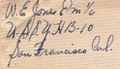 W.E. Jones Em 1/c
U.S.S. Y.H.B-10
San Francisco Cal.